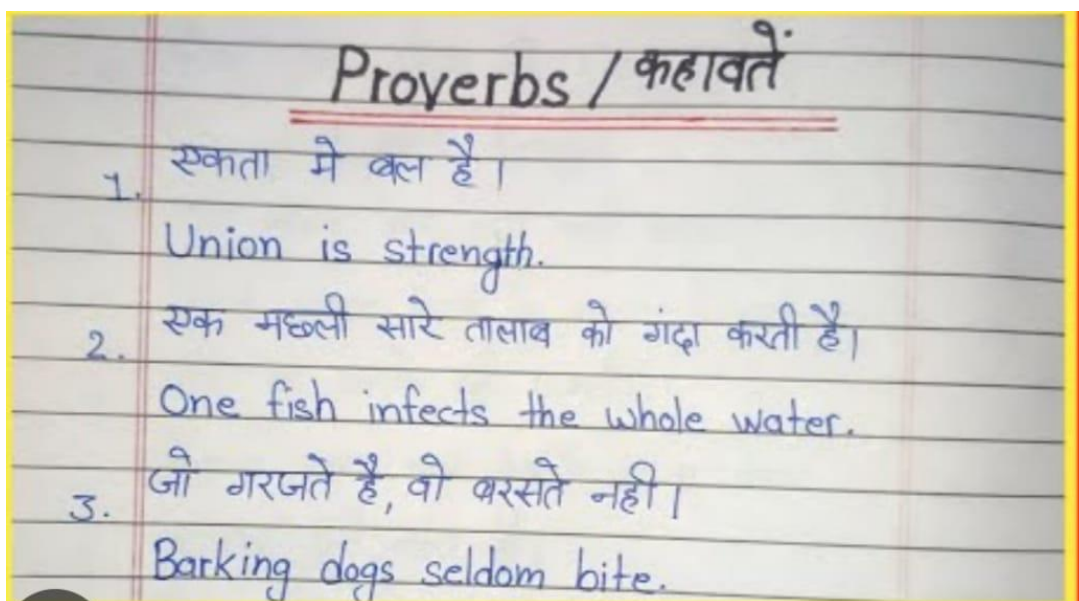 Proverbs / कहावतें
एकता मे बल है।
1.
Union is strength.
एक मछली सारे तालाब को गंदा करती है।
2.
One fish infects the whole water.
जो गरजते है, वो बरसते नही।
3.
Barking dogs seldom bite.